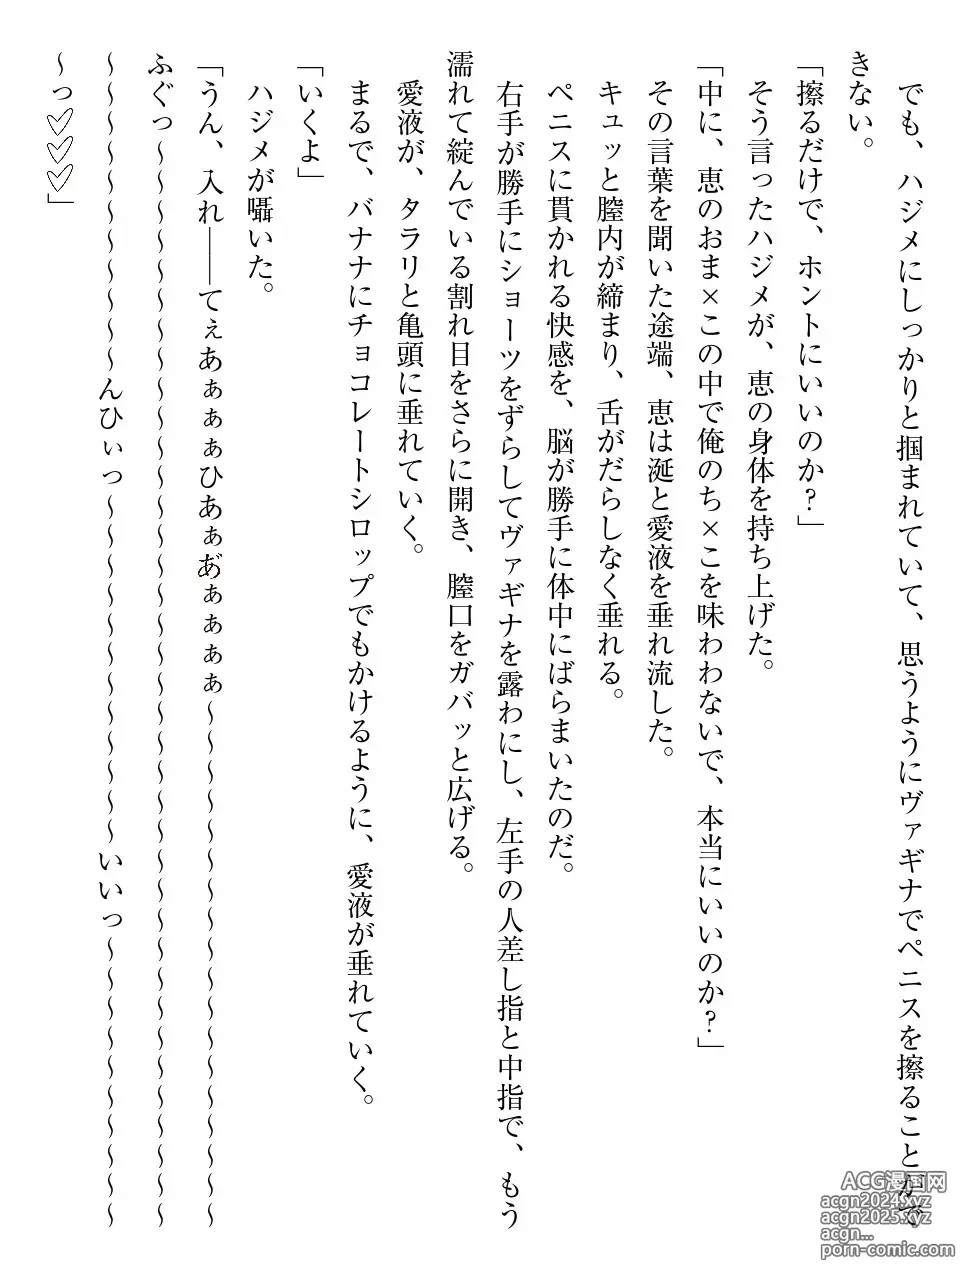 でも、ハジメにしっかりと掴まれていて、思うようにヴァギナでペニスを擦ることがで
きない。
「擦るだけで、ホントにいいのか？」
そう言ったハジメが、恵の身体を持ち上げた。
「中に、恵のおま×この中で俺のち×こを味わわないで、本当にいいのか？」
その言葉を聞いた途端、恵は涎と愛液を垂れ流した。
キュッと膣内が締まり、舌がだらしなく垂れる。
ペニスに貫かれる快感を、脳が勝手に体中にばらまいたのだ。
右手が勝手にショーツをずらしてヴァギナを露わにし、左手の人差し指と中指で、もう
濡れて綻んでいる割れ目をさらに開き、膣口をガバッと広げる。
愛液が、タラリと亀頭に垂れていく。
まるで、バナナにチョコレートシロップでもかけるように、愛液が垂れていく。
「いくよ」
ハジメが囁いた。
「うん、入れ――てぇあぁぁぁひあぁあ゙ぁぁぁぁ～～～～～～～～～～～～～～～～～～
ふぐっ～～～～～～～～～～～～～～～～～～～～～～～～～～～～～～～～～～～～～～
～～～～～～～～～～～んひぃっ～～～～～～～～～～～～いいっ～～～～～～～～～～
～っ♡♡♡」
ACG漫画网
acgn2024.xyz
acgn2025.xyz
acgn...
porn-comic.com